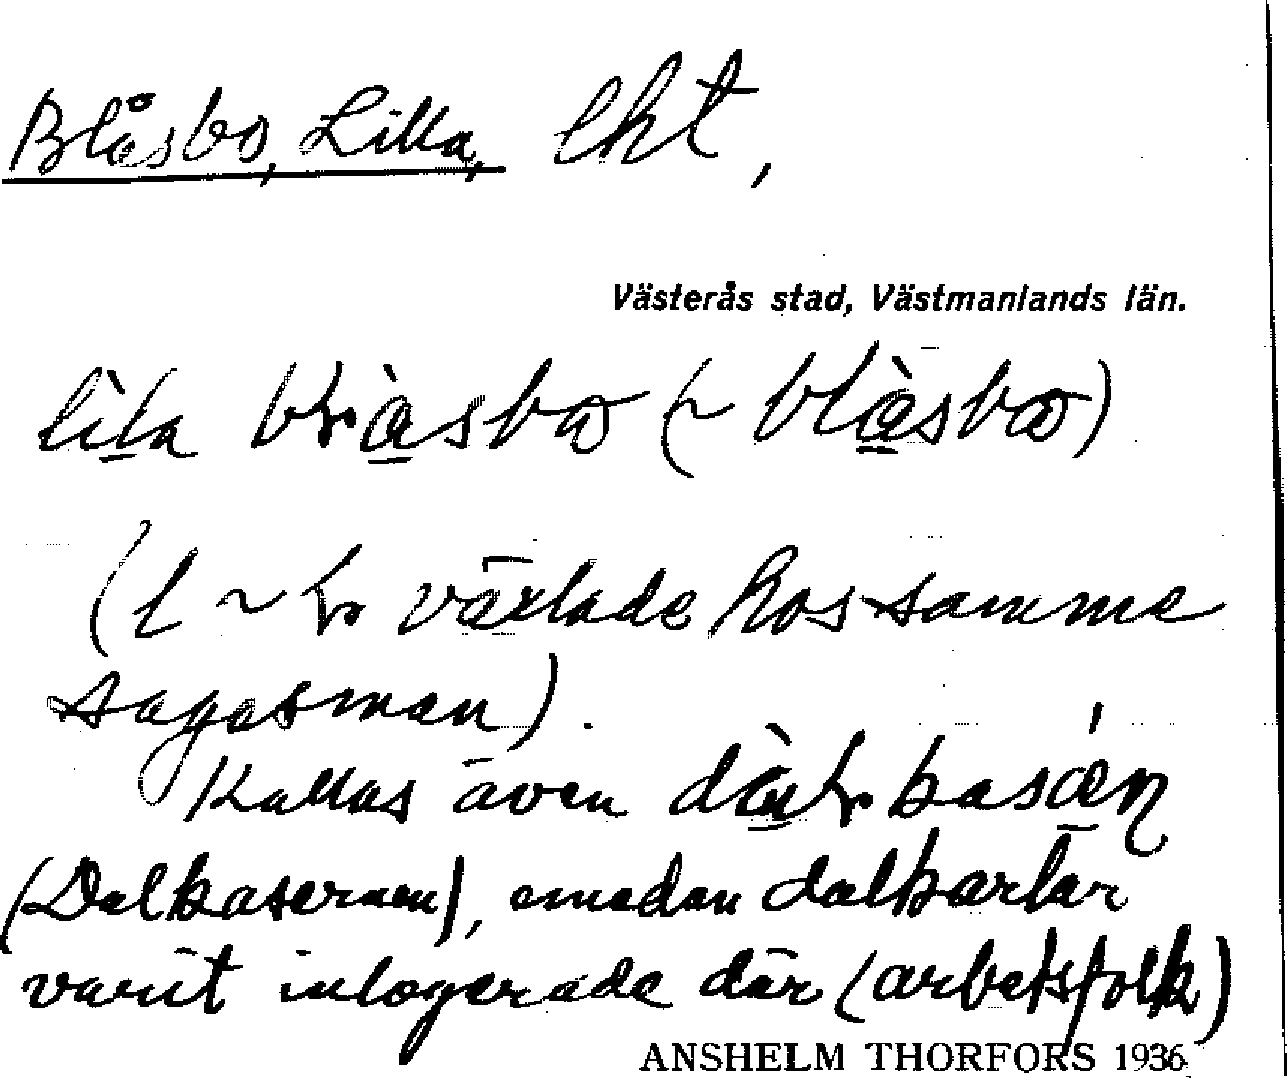 Blåsbo, Lilla, lht,
Västerås stad, Västmanlands län.
lìla bɽàsbo (~ blàsbo)
(l ~ ɽ växlade hos samme
sagesman).
Kallas även dàɽkasǽɳ
(Dalkasernen), emedan dalkarlar
varit inlogerade där (arbetsfolk)
ANSHELM THORFORS 1936